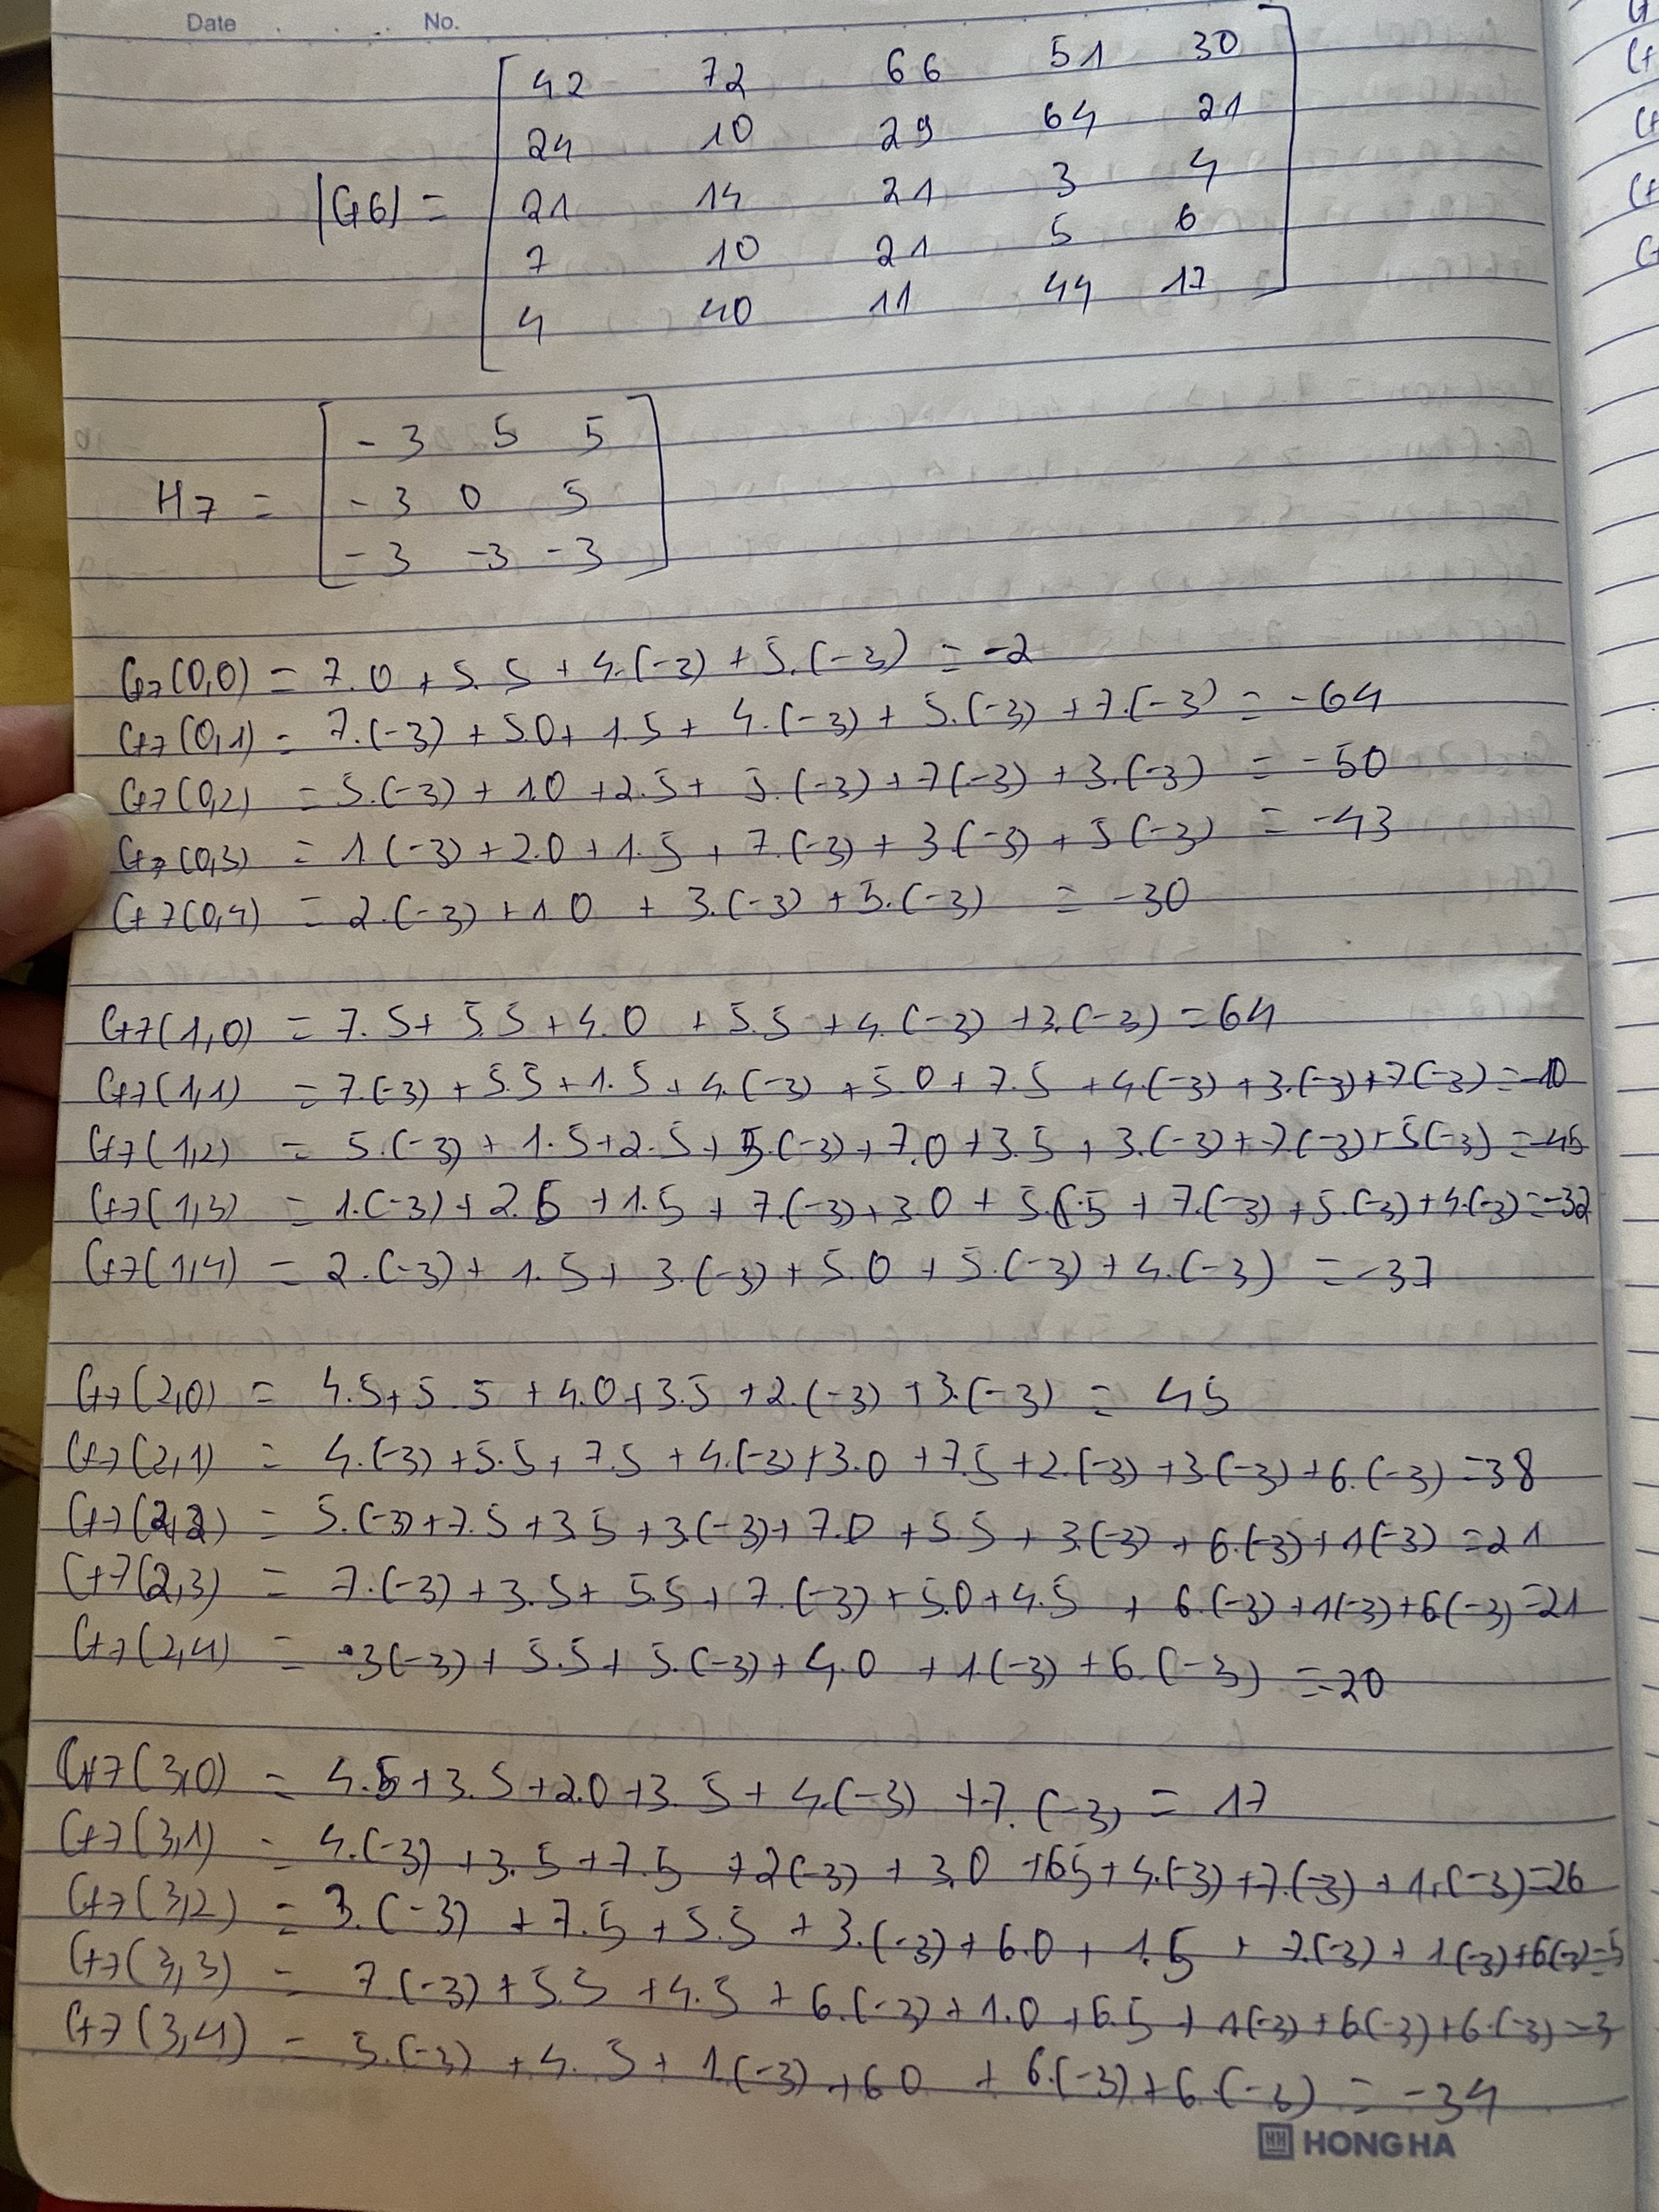 Date No.
42 72 66 51 30
24 10 29 64 21
|G6| = 21 14 21 3 4
7 10 21 5 6
4 40 11 44 17
-3 5 5
H7 = -3 0 5
-3 -3 -3
G7(0,0) = 7.0 + 5.5 + 4.(-3) + 5.(-3) = -2
G7(0,1) = 7.(-3) + 5.0 + 1.5 + 4.(-3) + 5.(-3) + 7.(-3) = -64
G7(0,2) = 5.(-3) + 1.0 + 2.5 + 5.(-3) + 7(-3) + 3.(-3) = -50
G7(0,3) = 1.(-3) + 2.0 + 1.5 + 7.(-3) + 3.(-3) + 5(-3) = -43
G7(0,4) = 2.(-3) + 1.0 + 3.(-3) + 5.(-3) = -30
G7(1,0) = 7.5 + 5.5 + 4.0 + 5.5 + 4.(-3) + 3.(-3) = 64
G7(1,1) = 7.(-3) + 5.5 + 1.5 + 4.(-3) + 5.0 + 7.5 + 4.(-3) + 3.(-3) + 7(-3) = -10
G7(1,2) = 5.(-3) + 1.5 + 2.5 + 5.(-3) + 7.0 + 3.5 + 3.(-3) + 7(-3) + 5(-3) = -45
G7(1,3) = 1.(-3) + 2.5 + 1.5 + 7.(-3) + 3.0 + 5.5 + 7.(-3) + 5.(-3) + 4.(-3) = -32
G7(1,4) = 2.(-3) + 1.5 + 3.(-3) + 5.0 + 5.(-3) + 4.(-3) = -37
G7(2,0) = 4.5 + 5.5 + 4.0 + 3.5 + 2.(-3) + 3.(-3) = 45
G7(2,1) = 4.(-3) + 5.5 + 7.5 + 4.(-3) + 3.0 + 7.5 + 2.(-3) + 3.(-3) + 6.(-3) = 38
G7(2,2) = 5.(-3) + 7.5 + 3.5 + 3.(-3) + 7.0 + 5.5 + 3.(-3) + 6.(-3) + 1(-3) = 21
G7(2,3) = 7.(-3) + 3.5 + 5.5 + 7.(-3) + 5.0 + 4.5 + 6.(-3) + 1(-3) + 6(-3) = -21
G7(2,4) = 3(-3) + 5.5 + 5.(-3) + 4.0 + 1(-3) + 6.(-3) = -20
G7(3,0) = 4.5 + 3.5 + 2.0 + 3.5 + 4.(-3) + 7.(-3) = 17
G7(3,1) = 4.(-3) + 3.5 + 7.5 + 2(-3) + 3.0 + 6.5 + 4.(-3) + 7.(-3) + 1.(-3) = 26
G7(3,2) = 3.(-3) + 7.5 + 5.5 + 3.(-3) + 6.0 + 1.5 + 7.(-3) + 1(-3) + 6(-3) = 5
G7(3,3) = 7.(-3) + 5.5 + 4.5 + 6.(-3) + 1.0 + 6.5 + 1(-3) + 6(-3) + 6.(-3) = -3
G7(3,4) = 5.(-3) + 4.5 + 1.(-3) + 6.0 + 6.(-3) + 6.(-3) = -34
HH HONG HA